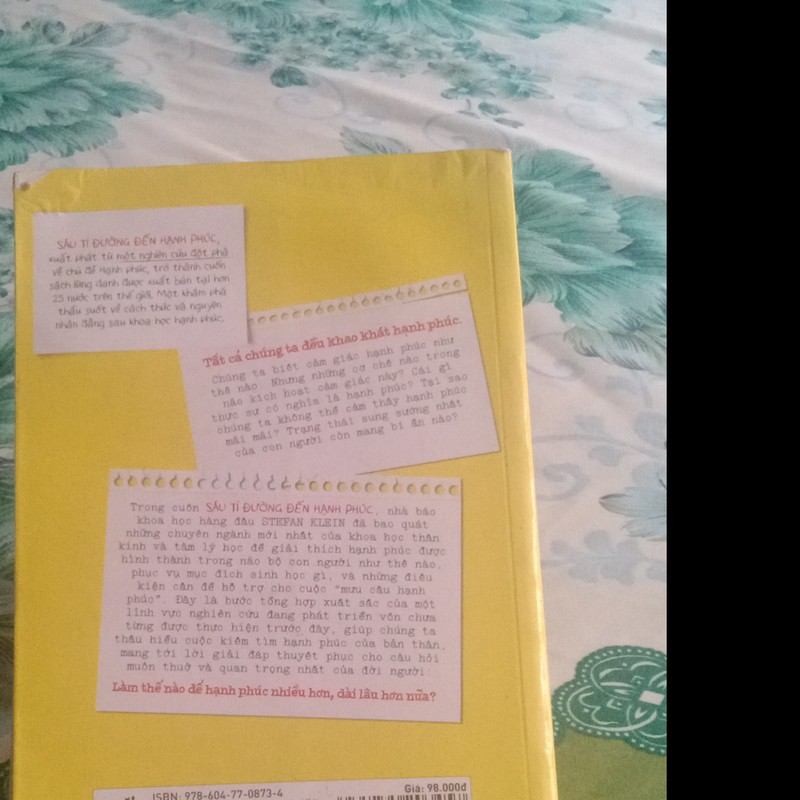 SÁU TỈ ĐƯỜNG ĐẾN HẠNH PHÚC,
xuất phát từ một nghiên cứu đột phá
về chủ đề hạnh phúc, trở thành cuốn
sách lừng danh được xuất bản tại hơn
25 nước trên thế giới. Một khám phá
thấu suốt về cách thức và nguyên
nhân đằng sau khoa học hạnh phúc.
Tất cả chúng ta đều khao khát hạnh phúc.
Chúng ta biết cảm giác hạnh phúc như
thế nào. Nhưng những cơ chế nào trong
não kích hoạt cảm giác này? Cái gì
thực sự có nghĩa là hạnh phúc? Tại sao
chúng ta không thể cảm thấy hạnh phúc
mãi mãi? Trạng thái sung sướng nhất
của con người còn mang bí ẩn nào?
Trong cuốn SÁU TỈ ĐƯỜNG ĐẾN HẠNH PHÚC, nhà báo
khoa học hàng đầu STEFAN KLEIN đã bao quát
những chuyên ngành mới nhất của khoa học thần
kinh và tâm lý học để giải thích hạnh phúc được
hình thành trong não bộ con người như thế nào,
phục vụ mục đích sinh học gì, và những điều
kiện cần để hỗ trợ cho cuộc "mưu cầu hạnh
phúc". Đây là bước tổng hợp xuất sắc của một
lĩnh vực nghiên cứu đang phát triển vốn chưa
từng được thực hiện trước đây, giúp chúng ta
thấu hiểu cuộc kiếm tìm hạnh phúc của bản thân,
mang tới lời giải đáp thuyết phục cho câu hỏi
muôn thuở và quan trọng nhất của đời người:
Làm thế nào để hạnh phúc nhiều hơn, dài lâu hơn nữa?
ISBN: 978-604-77-0873-4
Giá: 98.000đ